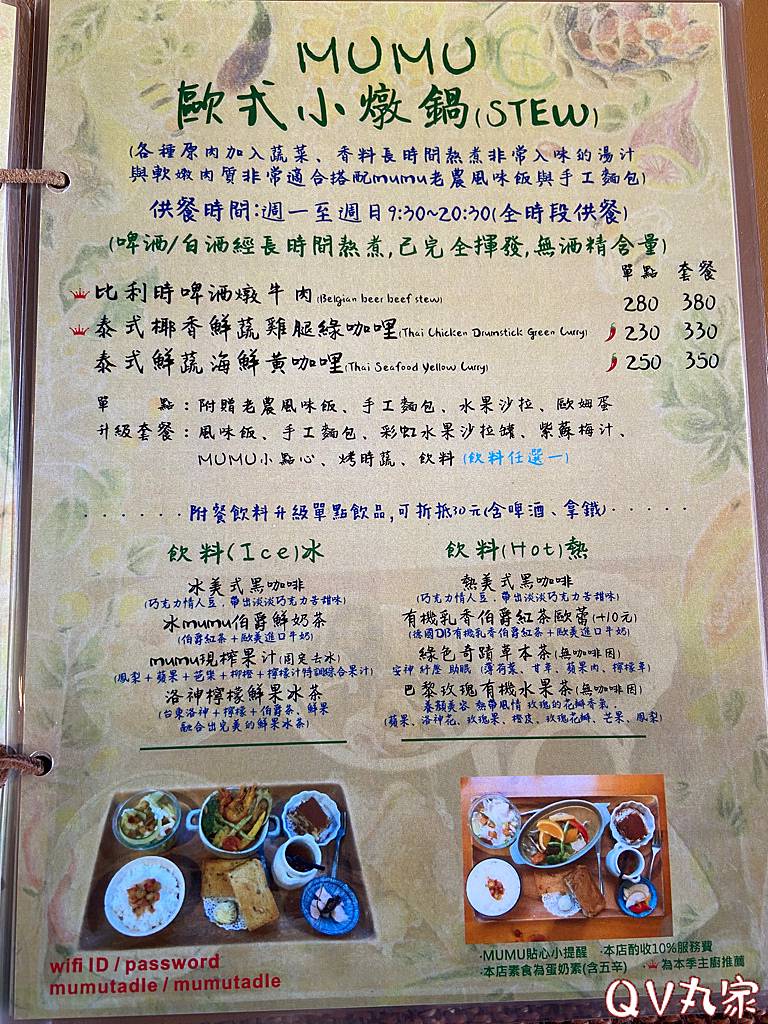 MUMU
歐式小燉鍋(STEW)
(各種原肉加入蔬菜、香料長時間熬煮非常入味的湯汁
與軟嫩肉質非常適合搭配mumu老農風味飯與手工麵包)
供餐時間:週一至週日9:30~20:30(全時段供餐)
(啤酒/白酒經長時間熬煮,已完全揮發,無酒精含量)
單點 套餐
比利時啤酒燉牛肉(Belgian beer beef stew) 280 380
泰式椰香鮮蔬雞腿綠咖哩(Thai Chicken Drumstick Green Curry) 230 330
泰式鮮蔬海鮮黃咖哩(Thai Seafood Yellow Curry) 250 350
單點:附贈老農風味飯、手工麵包、水果沙拉、歐姆蛋
升級套餐:風味飯、手工麵包、彩虹水果沙拉罐、紫蘇梅汁、
MUMU小點心、烤時蔬、飲料(飲料任選一)
······附餐飲料升級單點飲品,可折抵30元(含啤酒、拿鐵)·····
飲料(Ice)冰
冰美式黑咖啡
(巧克力情人豆，帶出淡淡巧克力苦甜味)
冰mumu伯爵鮮奶茶
(伯爵紅茶+歐美進口牛奶)
mumu現榨果汁(固定去冰)
(鳳梨+蘋果+芭樂+柳橙+檸檬汁特調綜合果汁)
洛神檸檬鮮果冰茶
(台東洛神+檸檬+伯爵茶、鮮果
融合出完美的鮮果冰茶)
飲料(Hot)熱
熱美式黑咖啡
(巧克力情人豆，帶出淡淡巧克力苦甜味)
有機乳香伯爵紅茶歐蕾(+10元)
(德國DIB有機乳香伯爵紅茶+歐美進口牛奶)
綠色奇蹟草本茶(無咖啡因)
安神 紓壓 助眠 (薄荷葉、甘草、蘋果肉、檸檬草)
巴黎玫瑰有機水果茶(無咖啡因)
養顏美容 熱帶風情 玫瑰的花瓣香氣
(蘋果、洛神花、玫瑰果、橙皮、玫瑰花瓣、芒果、鳳梨)
wifi ID / password
mumutadle / mumutadle
·MUMU貼心小提醒 ·本店酌收10%服務費
·本店素食為蛋奶素(含五辛) ·為本季主廚推薦
QV丸家